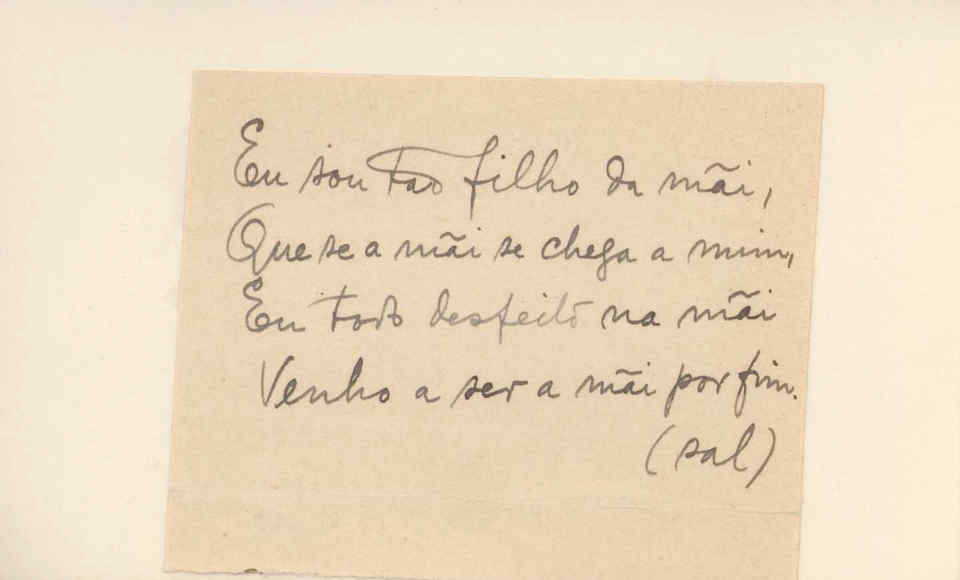 Eu sou tão filho da mãi,
Que se a mãi se chega a mim,
Eu todo desfeito na mãi
Venho a ser a mãi por fim.
(sal)